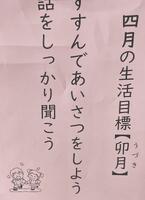 四月の生活目標【卯月】
うづき
すすんであいさつをしよう
話をしっかり聞こう